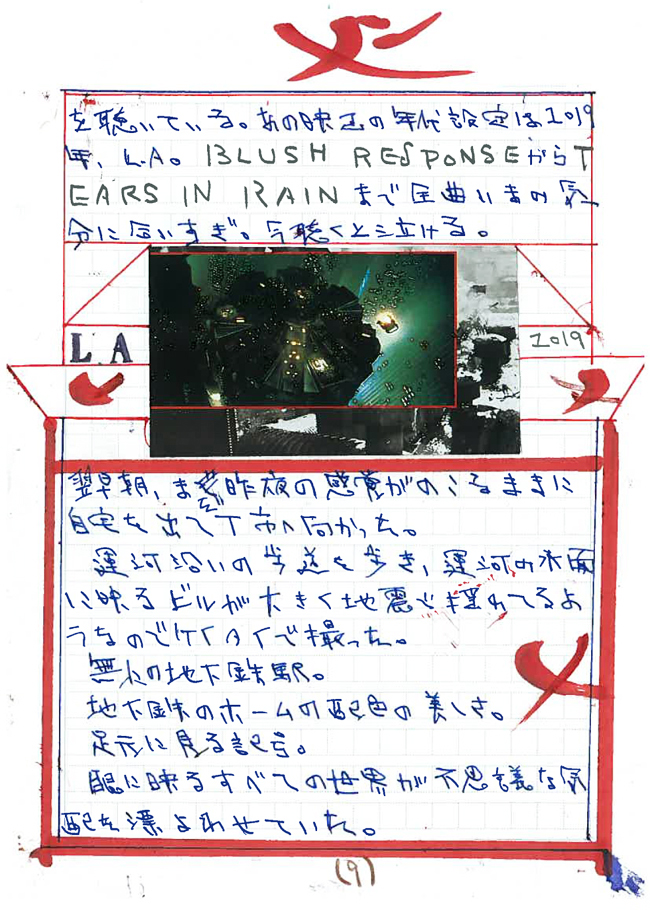 を聴いている。あの映画の年代設定は2019
年、L.A。BLUSH RESPONSEからT
EARS IN RAINまで全曲いまの気
分に合いすぎ。今聴くと泣ける。
LA
2019
翌早朝、まだ昨夜の感覚がのこるままに
自宅を出てT市へ向かった。
運河沿いの歩道を歩き、運河の水面
に映るビルが大きく地震で揺れてるよ
うなのでケイタイで撮った。
無人の地下鉄駅。
地下鉄のホームの配色の美しさ。
足元に見る記号。
眼に映るすべての世界が不思議な気
配を漂よわせていた。
(9)